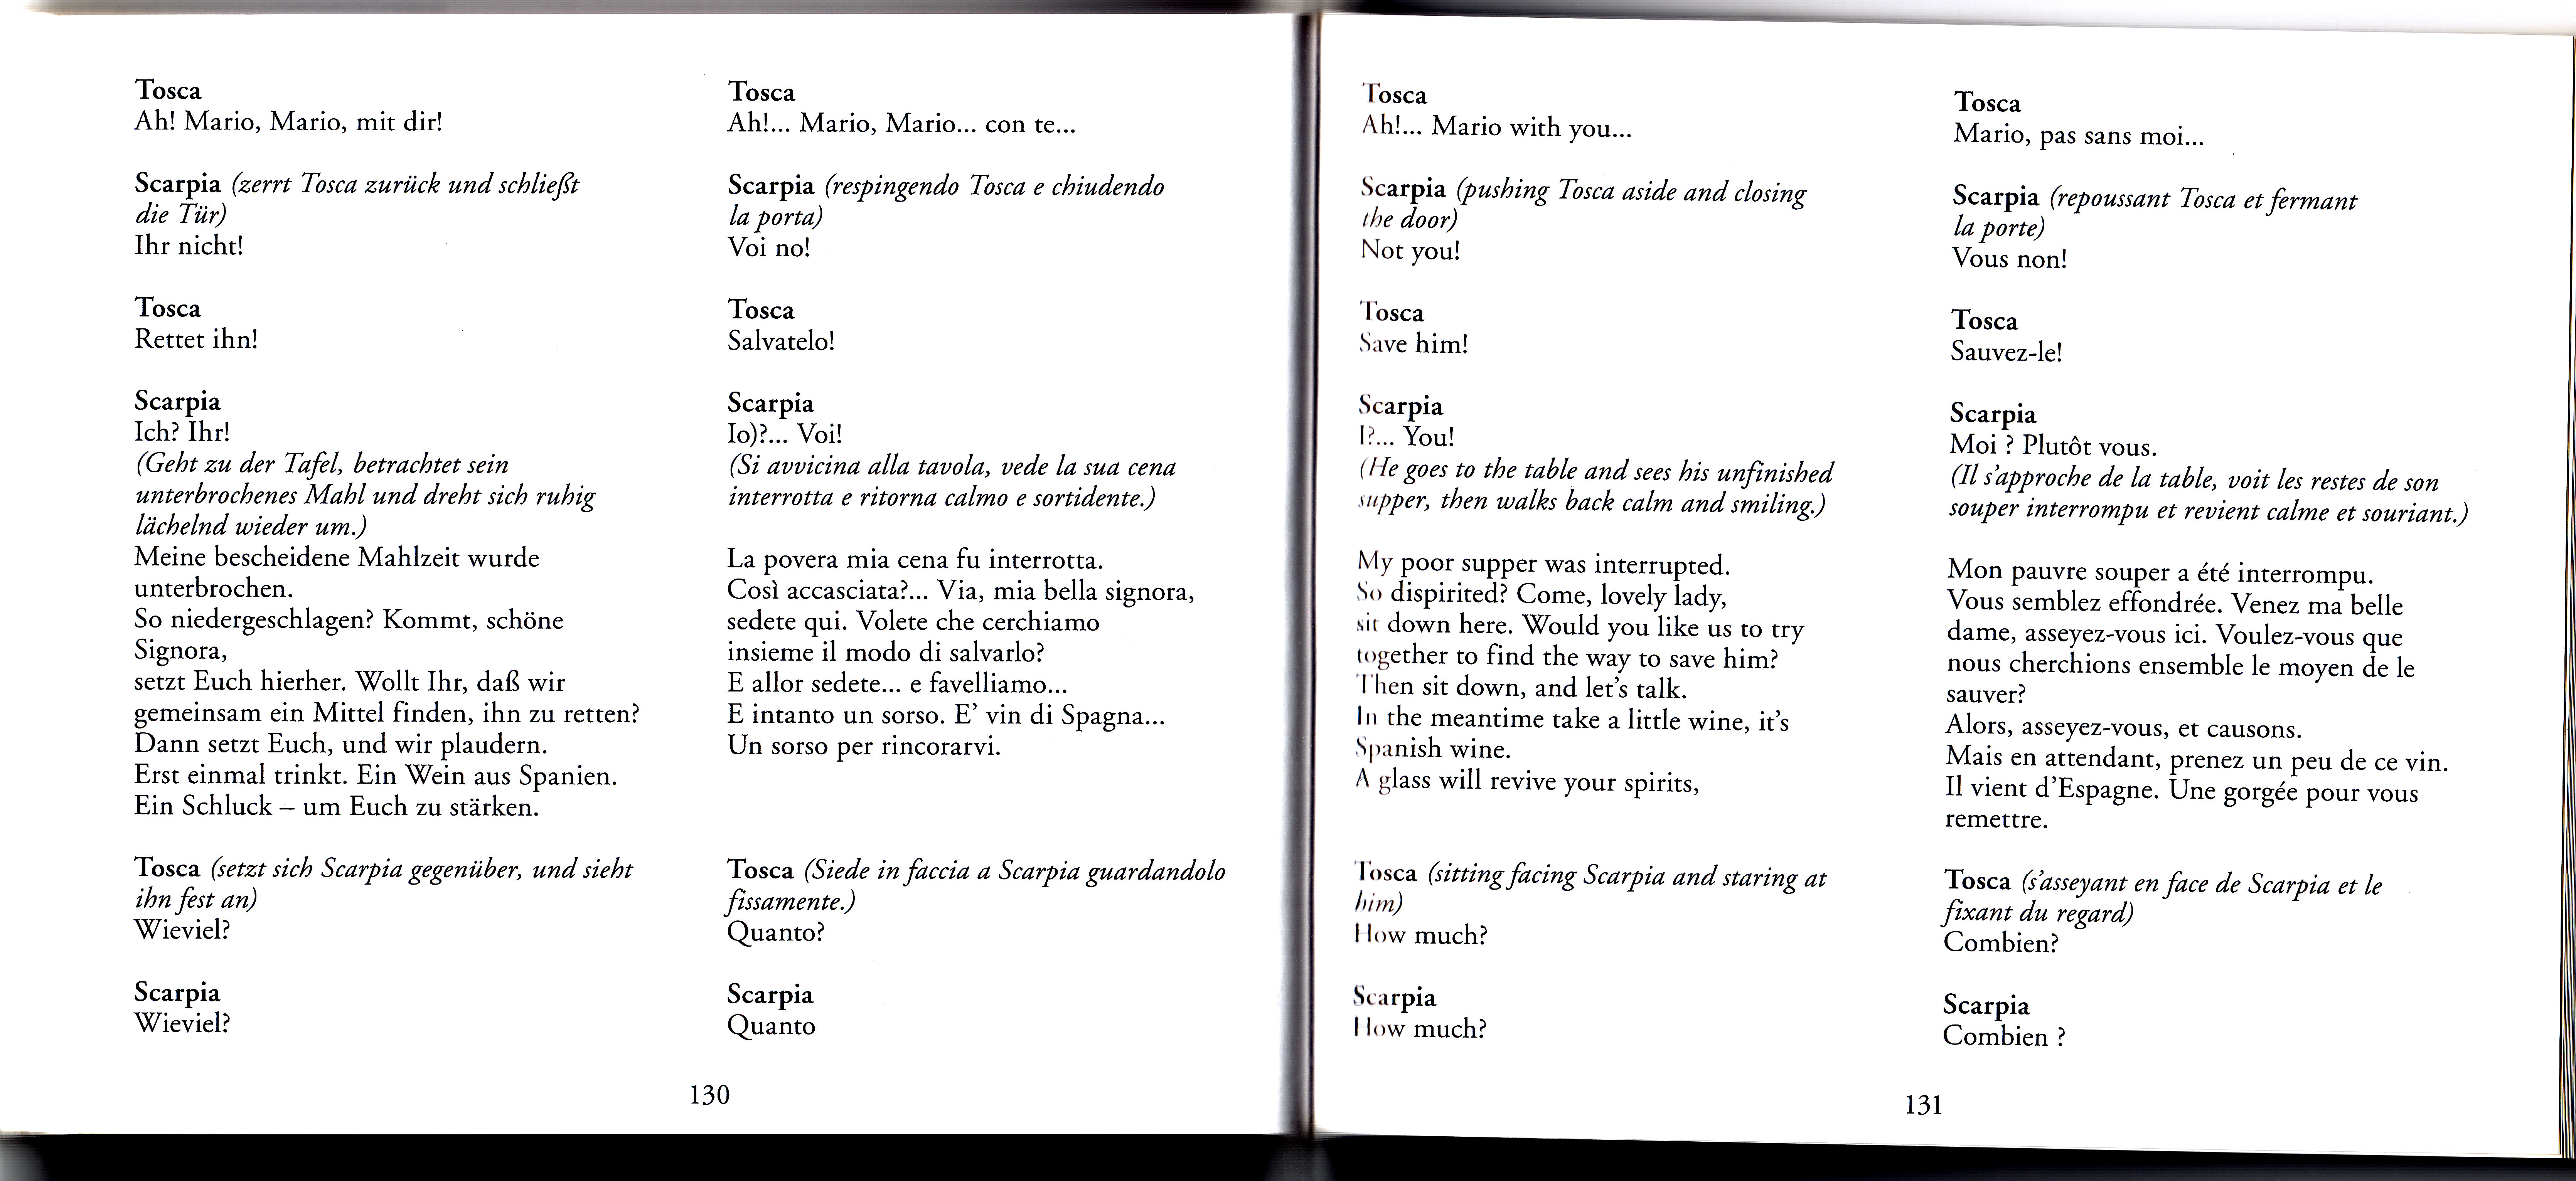 Tosca
Ah! Mario, Mario, mit dir!
Scarpia (zerrt Tosca zurück und schließt
die Tür)
Ihr nicht!
Tosca
Rettet ihn!
Scarpia
Ich? Ihr!
(Geht zu der Tafel, betrachtet sein
unterbrochenes Mahl und dreht sich ruhig
lächelnd wieder um.)
Meine bescheidene Mahlzeit wurde
unterbrochen.
So niedergeschlagen? Kommt, schöne
Signora,
setzt Euch hierher. Wollt Ihr, daß wir
gemeinsam ein Mittel finden, ihn zu retten?
Dann setzt Euch, und wir plaudern.
Erst einmal trinkt. Ein Wein aus Spanien.
Ein Schluck – um Euch zu stärken.
Tosca (setzt sich Scarpia gegenüber, und sieht
ihn fest an)
Wieviel?
Scarpia
Wieviel?
Tosca
Ah!... Mario, Mario... con te...
Scarpia (respingendo Tosca e chiudendo
la porta)
Voi no!
Tosca
Salvatelo!
Scarpia
Io)?... Voi!
(Si avvicina alla tavola, vede la sua cena
interrotta e ritorna calmo e sortidente.)
La povera mia cena fu interrotta.
Così accasciata?... Via, mia bella signora,
sedete qui. Volete che cerchiamo
insieme il modo di salvarlo?
E allor sedete... e favelliamo...
E intanto un sorso. E' vin di Spagna...
Un sorso per rincorarvi.
Tosca (Siede in faccia a Scarpia guardandolo
fissamente.)
Quanto?
Scarpia
Quanto
130
Tosca
Ah!... Mario with you...
Scarpia (pushing Tosca aside and closing
the door)
Not you!
Tosca
Save him!
Scarpia
I?... You!
(He goes to the table and sees his unfinished
supper, then walks back calm and smiling.)
My poor supper was interrupted.
So dispirited? Come, lovely lady,
sit down here. Would you like us to try
together to find the way to save him?
Then sit down, and let's talk.
In the meantime take a little wine, it's
Spanish wine.
A glass will revive your spirits,
Tosca (sitting facing Scarpia and staring at
him)
How much?
Scarpia
How much?
Tosca
Mario, pas sans moi...
Scarpia (repoussant Tosca et fermant
la porte)
Vous non!
Tosca
Sauvez-le!
Scarpia
Moi ? Plutôt vous.
(Il s'approche de la table, voit les restes de son
souper interrompu et revient calme et souriant.)
Mon pauvre souper a été interrompu.
Vous semblez effondrée. Venez ma belle
dame, asseyez-vous ici. Voulez-vous que
nous cherchions ensemble le moyen de le
sauver?
Alors, asseyez-vous, et causons.
Mais en attendant, prenez un peu de ce vin.
Il vient d'Espagne. Une gorgée pour vous
remettre.
Tosca (s'asseyant en face de Scarpia et le
fixant du regard)
Combien?
Scarpia
Combien ?
131